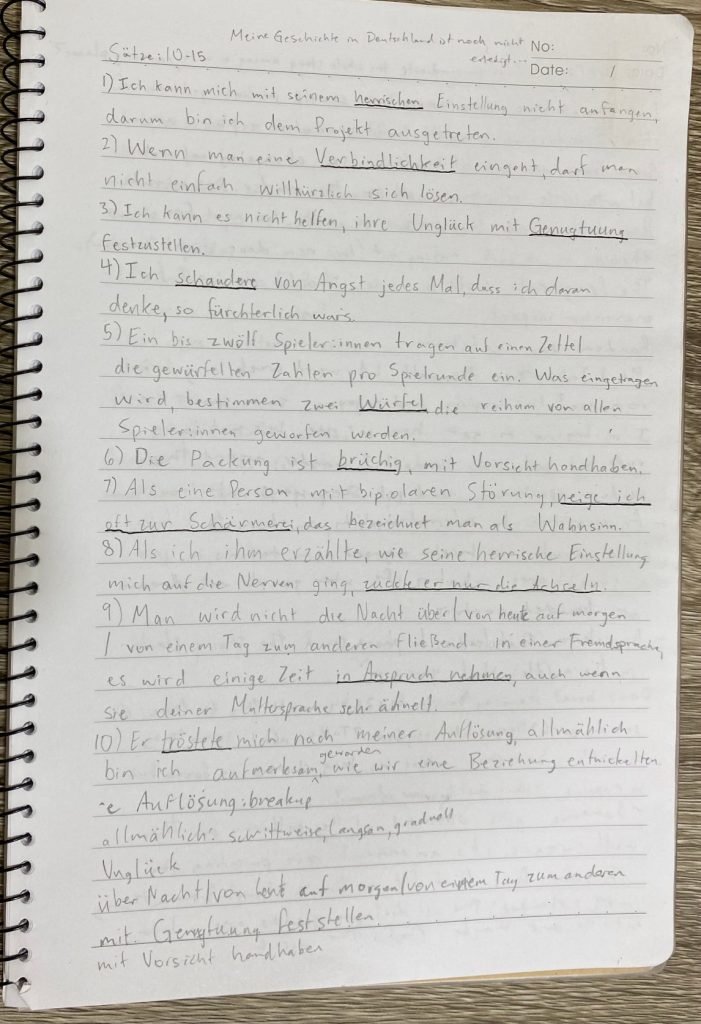 Meine Geschichte in Deutschland ist noch nicht
erledigt...
No:
Sätze: 10-15
Date: /
1) Ich kann mich mit seinem herrischen Einstellung nicht anfangen,
darum bin ich dem Projekt ausgetreten.
2) Wenn man eine Verbindlichkeit eingeht, darf man
nicht einfach willkürzlich sich lösen.
3) Ich kann es nicht helfen, ihre Unglück mit Genugtuung
festzustellen.
4) Ich schaudere von Angst jedes Mal, dass ich daran
denke, so fürchterlich war's.
5) Ein bis zwölf Spieler:innen tragen auf einen Zettel
die gewürfelten Zahlen pro Spielrunde ein. Was eingetragen
wird, bestimmen zwei Würfel, die reihum von allen
Spieler:innen geworfen werden.
6) Die Packung ist brüchig, mit Vorsicht handhaben.
7) Als eine Person mit bipolaren Störung, neige ich
oft zur Schärmerei, das bezeichnet man als Wahnsinn.
8) Als ich ihm erzählte, wie seine herrische Einstellung
mich auf die Nerven ging, zuckte er nur die Achseln.
9) Man wird nicht die Nacht über/von heute auf morgen
/ von einem Tag zum anderen fließend in einer Fremdsprache,
es wird einige Zeit in Anspruch nehmen, auch wenn
sie deiner Muttersprache sehr ähnelt.
10) Er tröstete mich nach meiner Auflösung, allmählich
geworden
bin ich aufmerksam, wie wir eine Beziehung entwickelten
-e Auflösung: breakup
allmählich: schrittweise, langsam, graduell
Unglück
über Nacht/von heut auf morgen/von einem Tag zum anderen
mit Genugtuung feststellen
mit Vorsicht handhaben